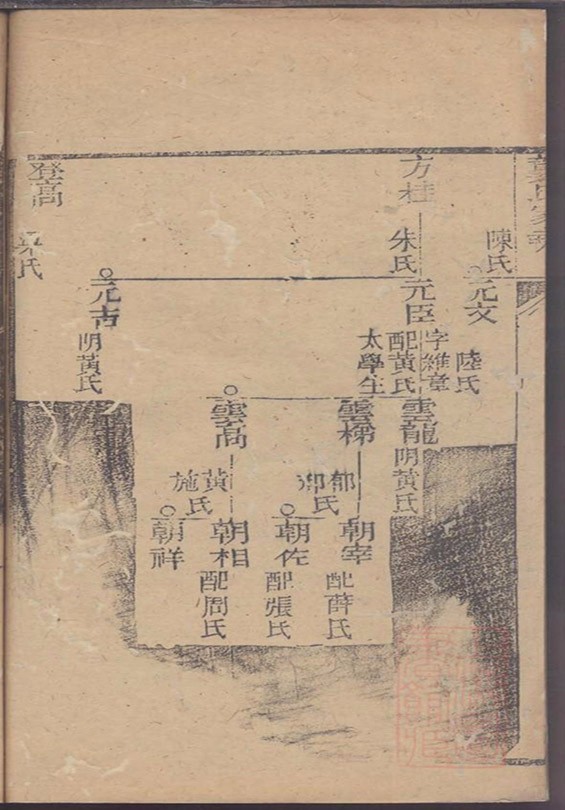 陳氏
元文
陸氏
方桂
朱氏
元臣
字維章
配黃氏
太學生
雲龍
配黃氏
雲梯
郁氏
朝宰
配薛氏
朝佐
配張氏
雲高
黃氏
施
朝相
配周氏
朝祥
元吉
配黃氏
登高
氏